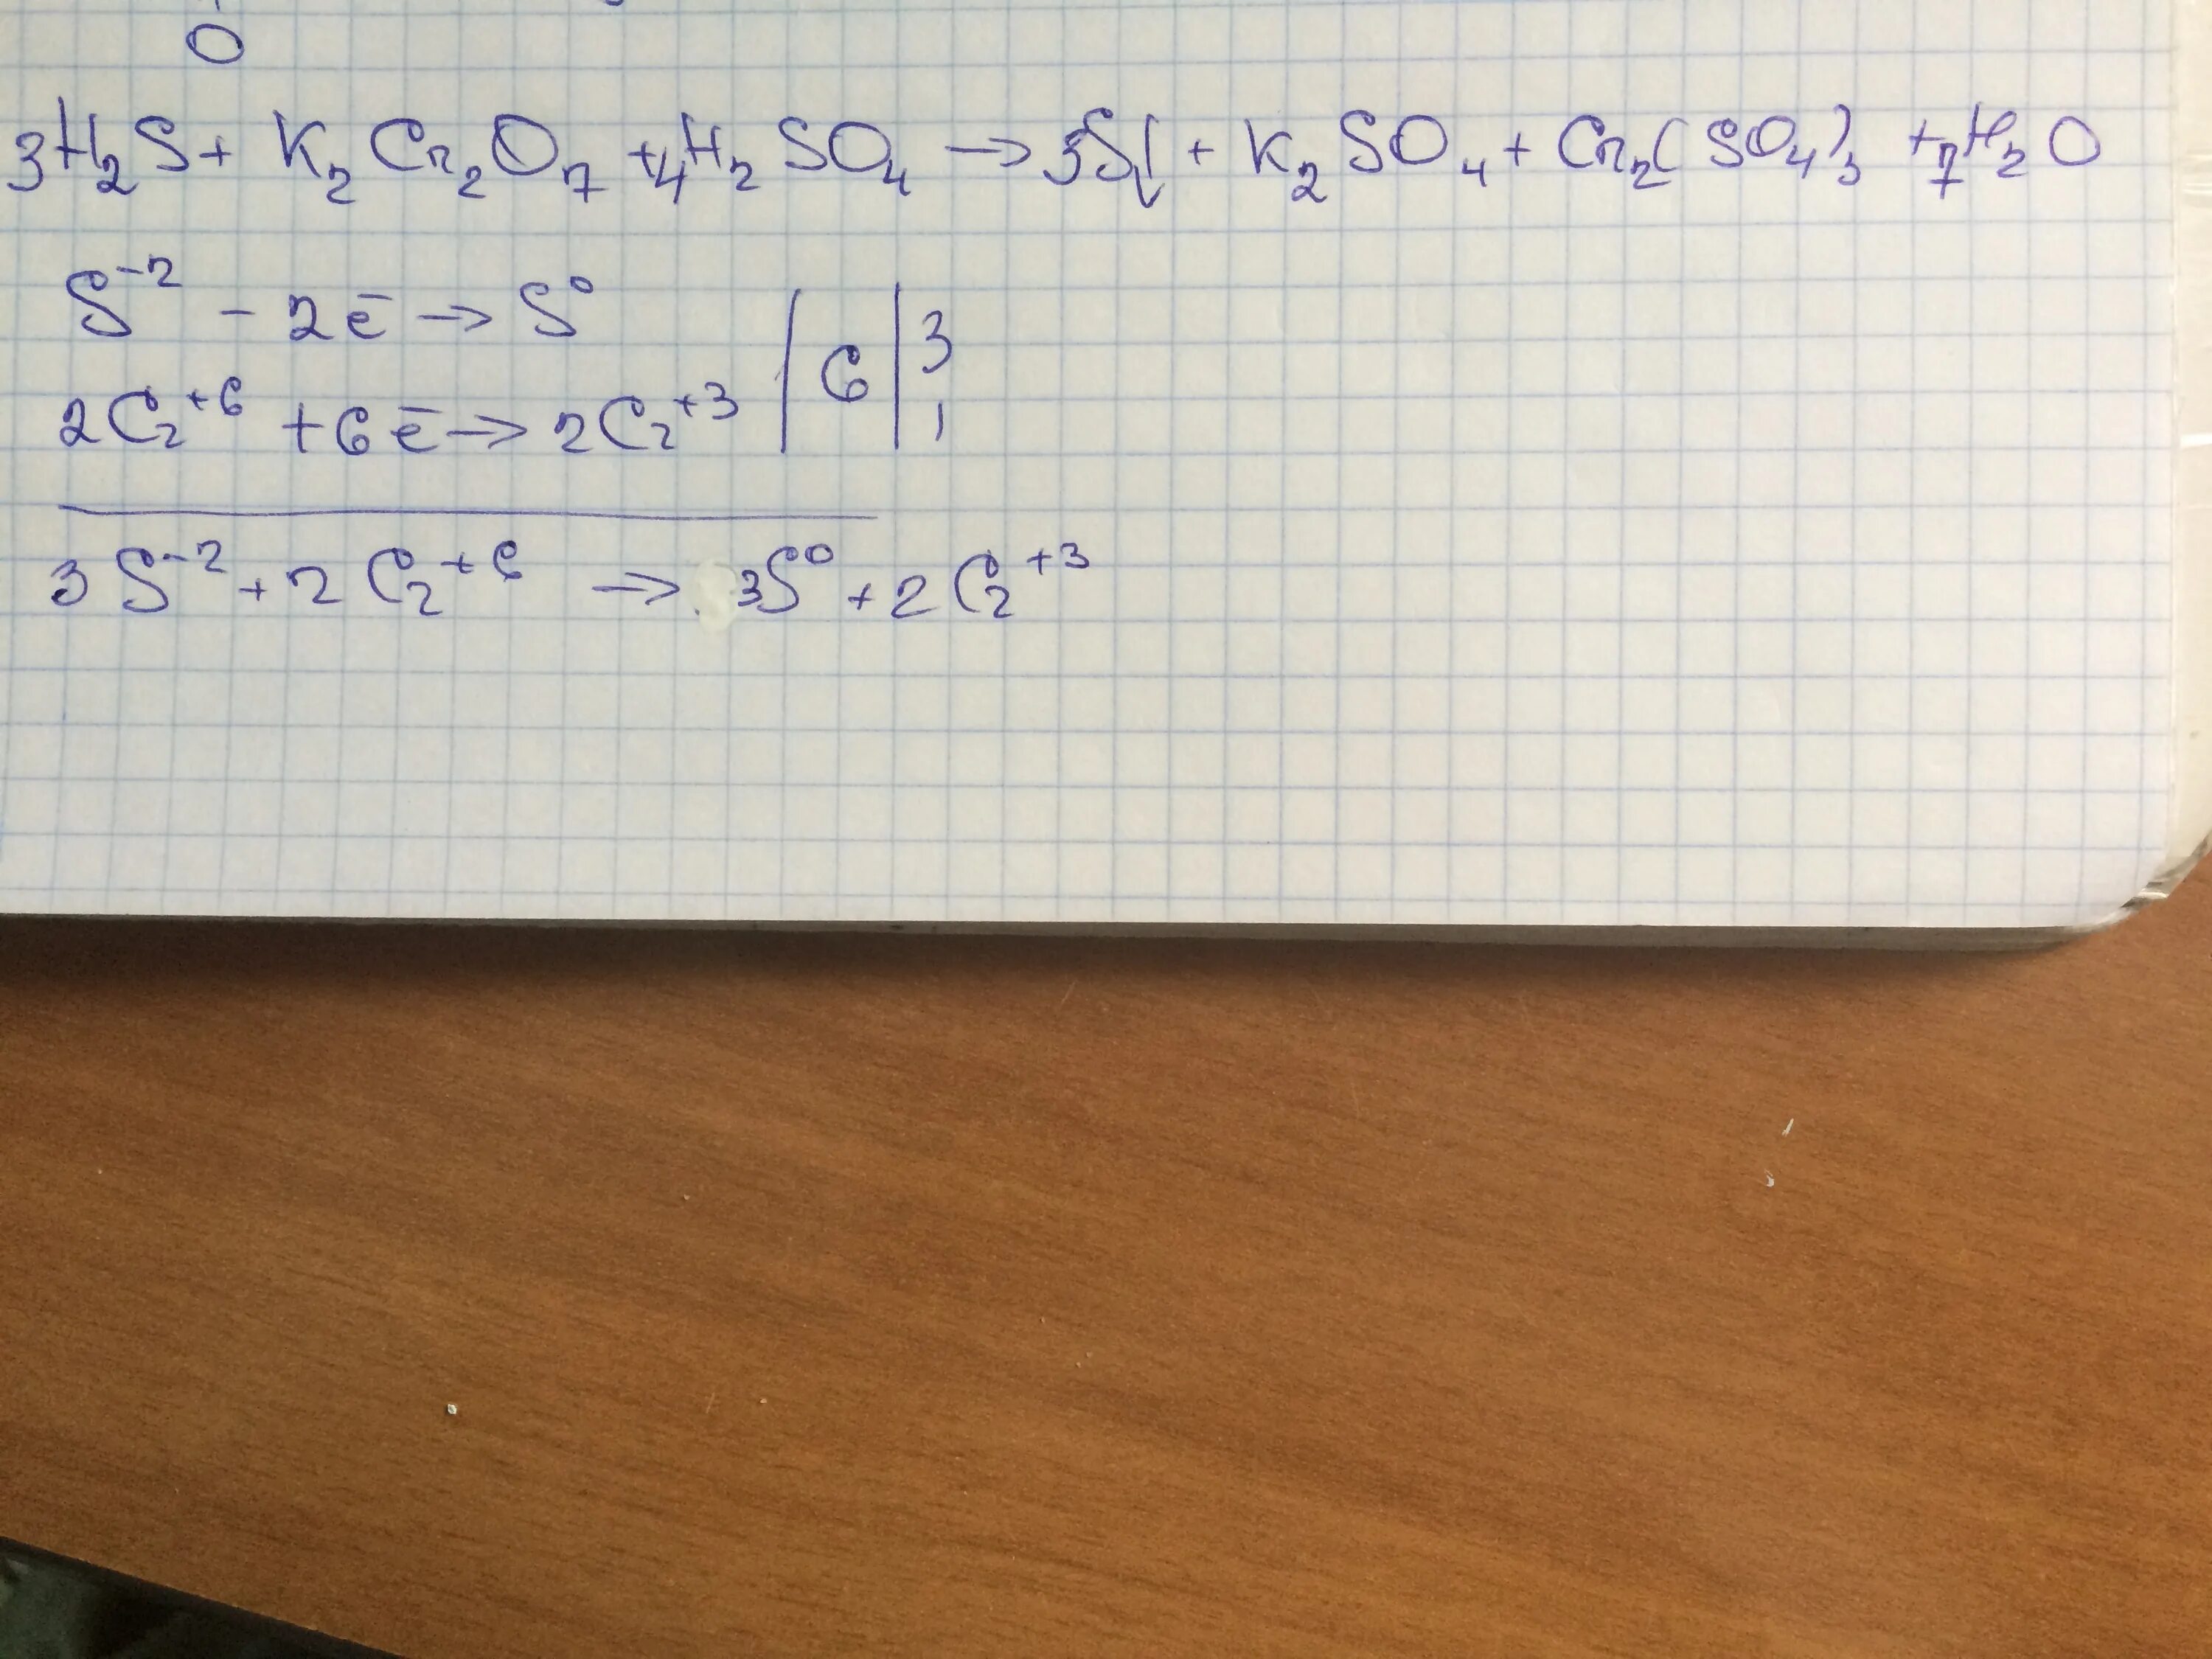 O
3H₂S + K₂Cr₂O₇ + 4H₂SO₄ → 3S↓ + K₂SO₄ + Cr₂(SO₄)₃ + 7H₂O
S⁻² - 2ē → S⁰ | 6 | 3
2Cr⁺⁶ + 6ē → 2Cr⁺³ | 1
3S⁻² + 2Cr⁺⁶ → 3S⁰ + 2Cr⁺³